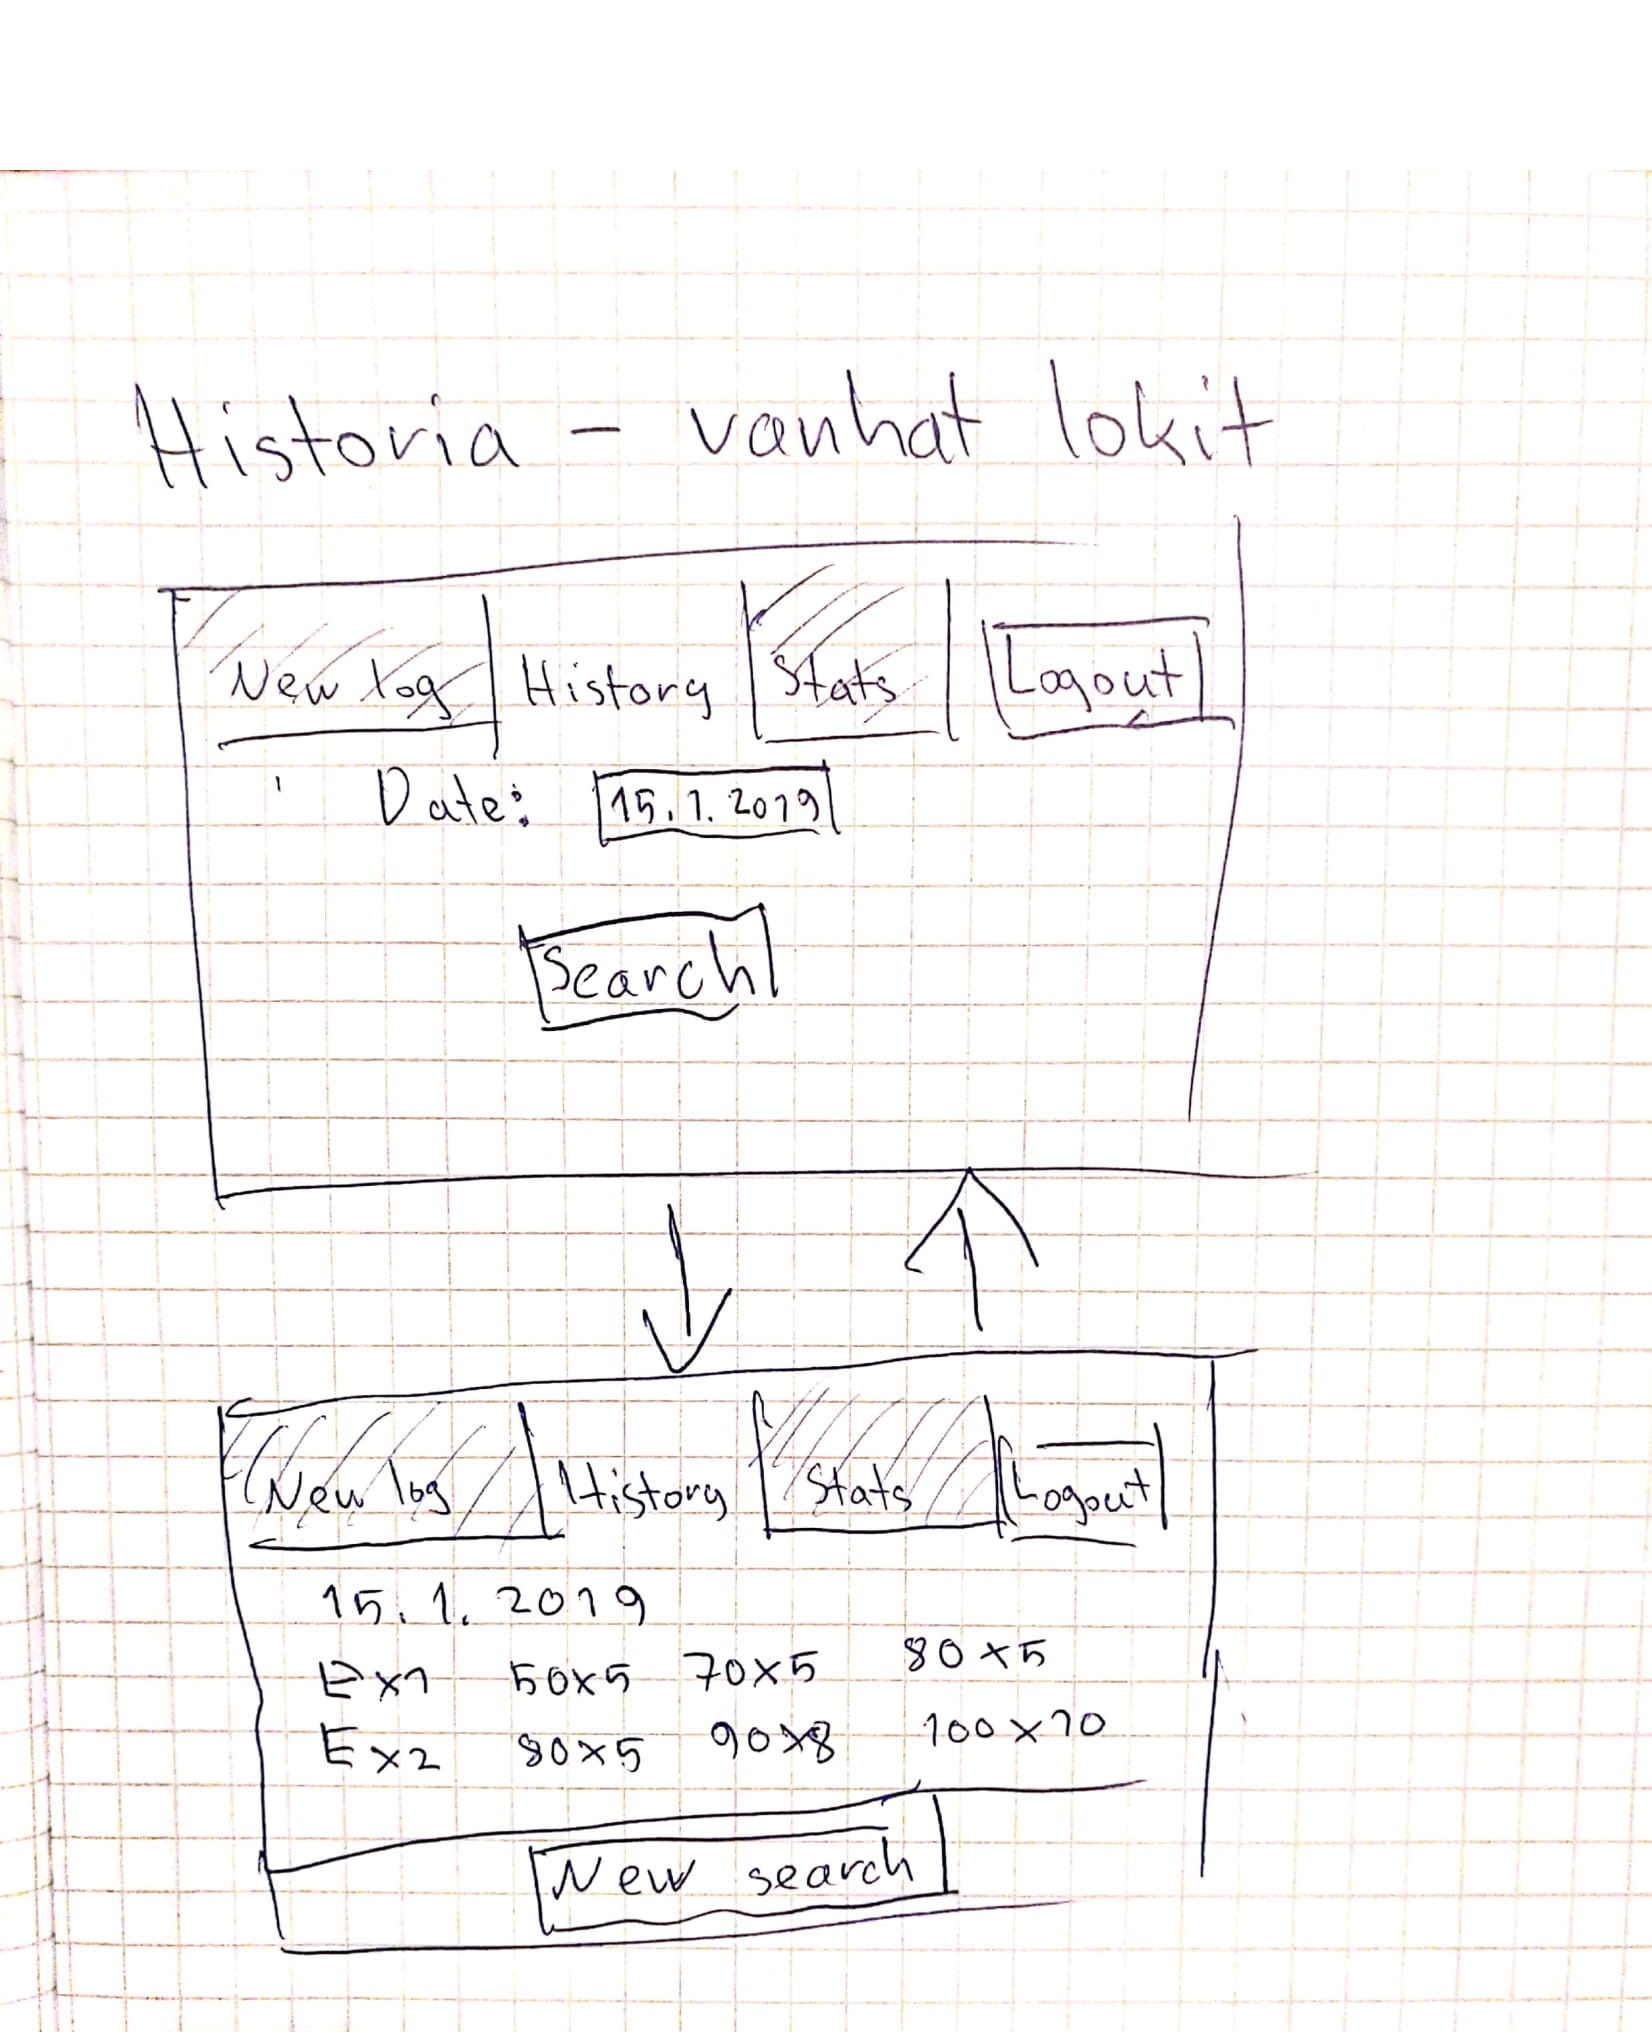 Historia - vanhat lokit
New log History Stats Logout
Date: 15.1.2019
Search
New log History Stats Logout
15.1.2019
Ex1 50x5 70x5 80x5
Ex2 80x5 90x8 100x10
New search